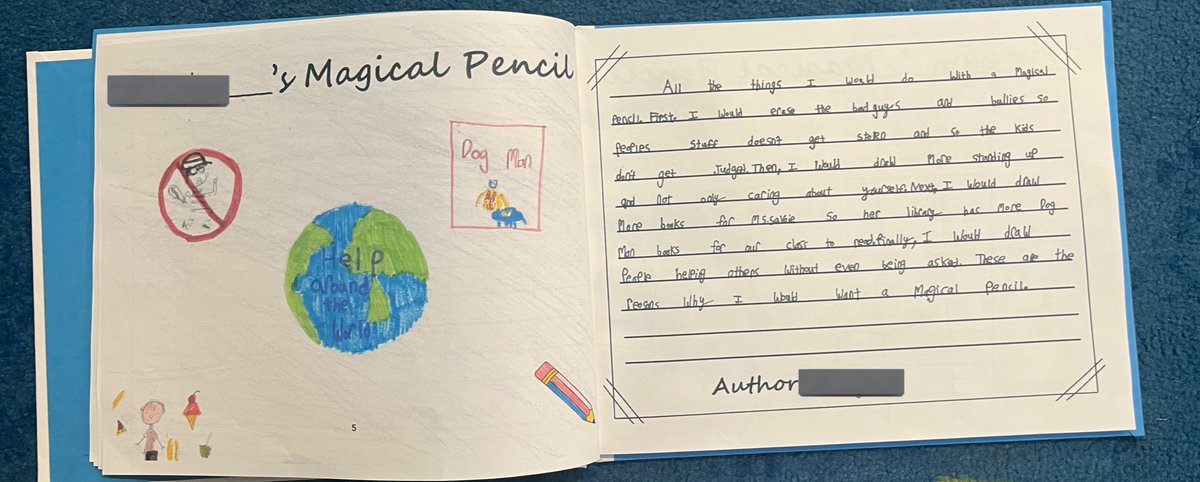 's Magical Pencil
Dog Man
Help
around
the
World
5
All the things I would do with a magical
pencil. First, I would erase the bad guys and bullies so
peoples stuff doesn't get stolen and so the kids
don't get judged. Then, I would draw more standing up
and not only caring about yourself. Next, I would draw
more books for MS. so her library has more Dog
Man books for our class to read. finally, I would draw
people helping others without even being asked. These are the
reasons why I would want a magical pencil.
Author